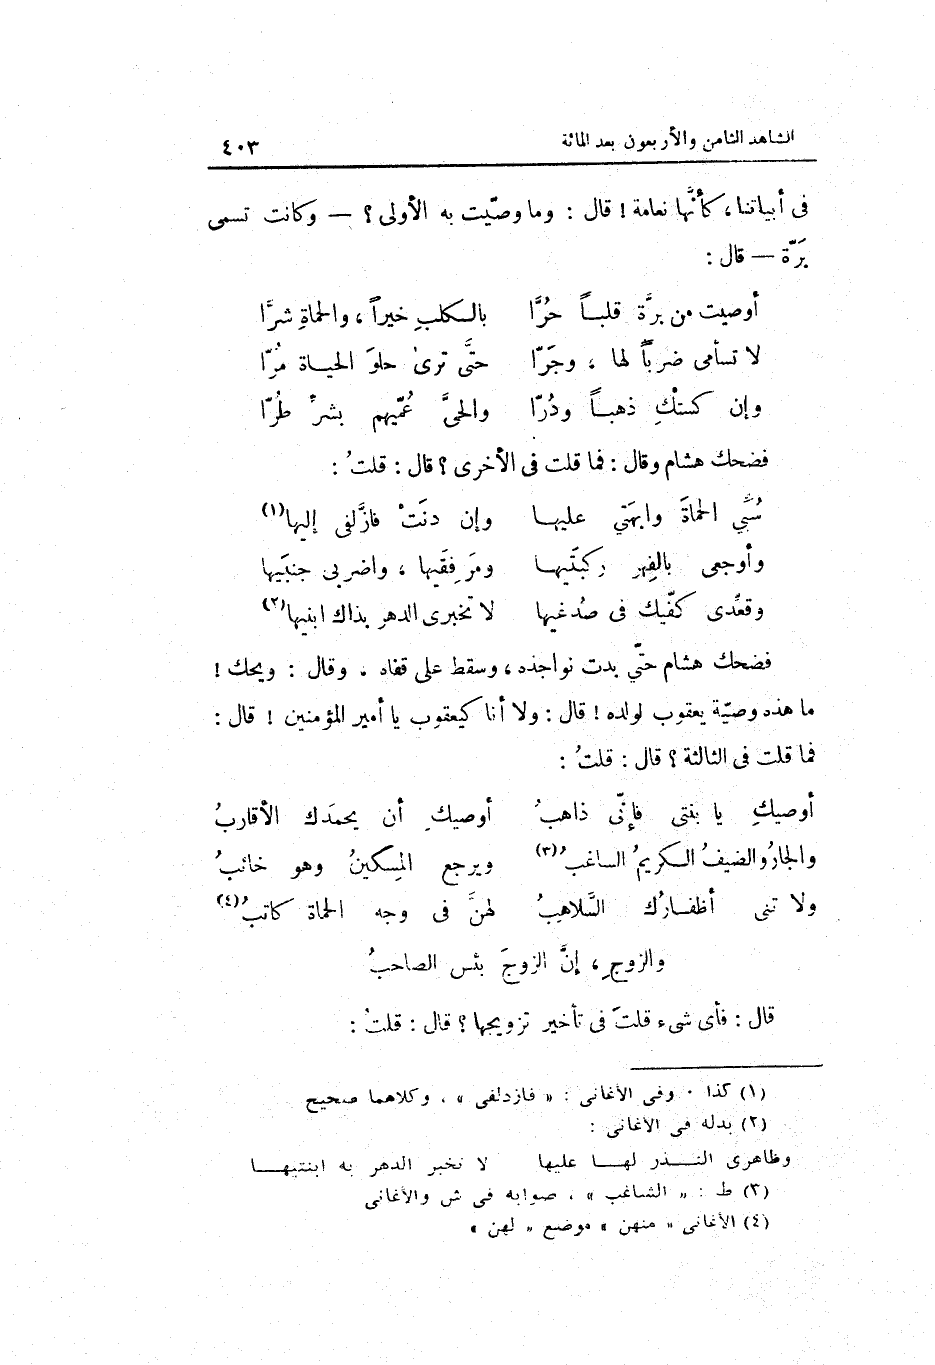 الشاهد الثامن والأربعون بعد المائة ٤٠٣
فى أبياتنا، كأنَّها نعامة! قال : وما وصّيت به الأولى؟ — وكانت تسمى
بَرّة — قال :
أوصيت من برَّة قلبــاً حُرَّا بالـكلبِ خيراً، والحماةِ شرَّا
لا تسأمى ضرباً لها ، وجَرّا حتَّى ترىٰ حلوَ الحيـاة مُرّا
وإن كستْكِ ذهبـاً ودُرّا والحىَّ عُمِّيهم بشرٍّ طُرّا
فضحك هشام وقال : فما قلت فى الأخرى؟ قال : قلتُ :
سُبِّى الحماةَ وابهَتى عليهـا وإن دنَتْ فازَّلفى إليها(١)
وأوجعى بالفِهر ركبتَيهـا ومَرفِقَيها ، واضربى جنبَيها
وقعِّدى كفَّيك فى صُدغيها لا تخبرى الدهرِ بذاك ابنيها(٢)
فضحك هشام حتّى بدت نواجذه، وسقط على قفاه . وقال : ويحك!
ما هذه وصيّة يعقوب لولده! قال : ولا أنا كيعقوب يا أمير المؤمنين! قال :
فما قلت فى الثالثة؟ قال : قلتُ :
أوصيكِ يا بنتى فإنّى ذاهبُ أوصيكِ أن يحمدَك الأقاربُ
والجارُ والضيفُ الـكريمُ الساغبُ(٣) ويرجع المِسكينُ وهو خائبُ
ولا تنى أظفـارُك السَّلاهِبُ لهنَّ فى وجه الحماة كاتبُ(٤)
والزوجِ، إنَّ الزوجَ بئس الصاحبُ
قال : فأى شىء قلتَ فى تأخير تزويجها؟ قال : قلتُ :
(١) كذا . وفى الأغانى : « فازدلفى » ، وكلاهما صحيح
(٢) بدله فى الأغانى :
وظاهرى النـــذر لهــا عليها لا تخبر الدهر به ابنتيهــا
(٣) ط : « الشاغب » ، صوابه فى ش والأغانى
(٤) الأغانى « منهن » موضع « لهن »